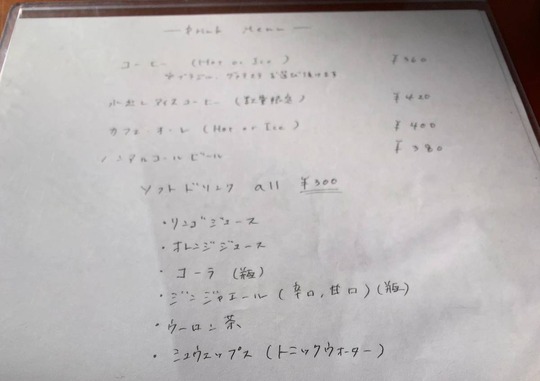 — Drink Menu —
コーヒー (Hot or Ice) ¥360
水出しアイスコーヒー (数量限定) ¥420
カフェ・オ・レ (Hot or Ice) ¥400
ノンアルコールビール ¥380
ソフトドリンク all ¥300
・リンゴジュース
・オレンジジュース
・コーラ (瓶)
・ジンジャエール (辛口, 甘口) (瓶)
・ウーロン茶
・シュウェップス (トニックウォーター)